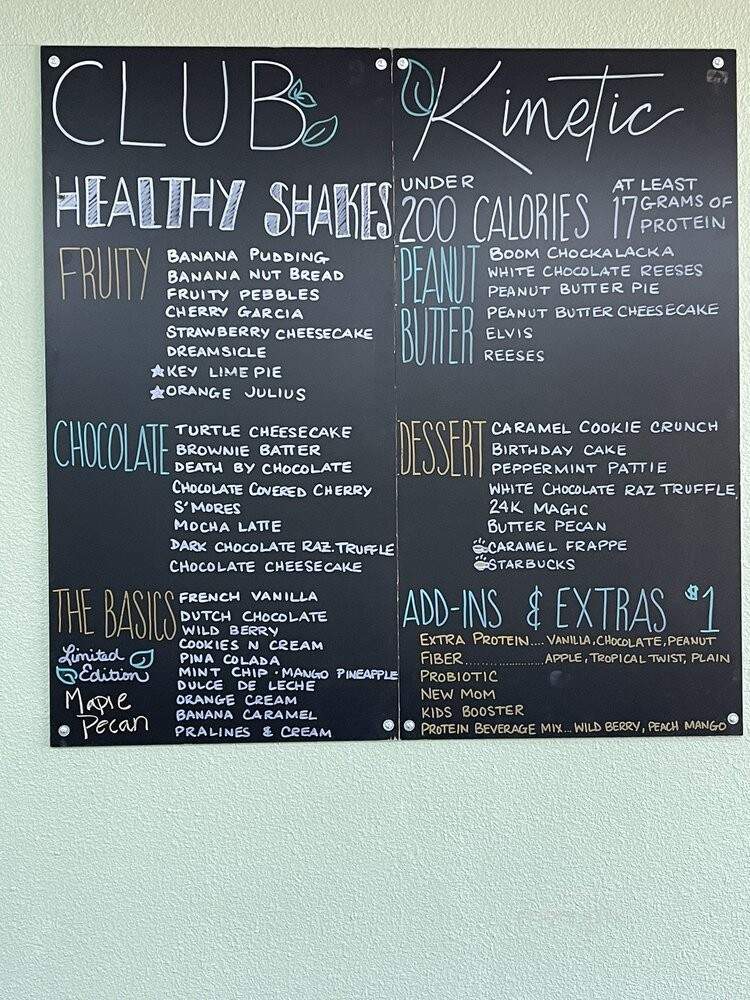 CLUB Kinetic
HEALTHY SHAKES
UNDER
200 CALORIES
AT LEAST
17 GRAMS OF
PROTEIN
FRUITY
BANANA PUDDING
BANANA NUT BREAD
FRUITY PEBBLES
CHERRY GARCIA
STRAWBERRY CHEESECAKE
DREAMSICLE
KEY LIME PIE
ORANGE JULIUS
CHOCOLATE
TURTLE CHEESECAKE
BROWNIE BATTER
DEATH BY CHOCOLATE
CHOCOLATE COVERED CHERRY
S'MORES
MOCHA LATTE
DARK CHOCOLATE RAZ. TRUFFLE
CHOCOLATE CHEESECAKE
THE BASICS
FRENCH VANILLA
DUTCH CHOCOLATE
WILD BERRY
COOKIES N CREAM
PINA COLADA
MINT CHIP · MANGO PINEAPPLE
DULCE DE LECHE
ORANGE CREAM
BANANA CARAMEL
PRALINES & CREAM
Limited
Edition
Maple
Pecan
PEANUT
BUTTER
BOOM CHOCKALACKA
WHITE CHOCOLATE REESES
PEANUT BUTTER PIE
PEANUT BUTTER CHEESECAKE
ELVIS
REESES
DESSERT
CARAMEL COOKIE CRUNCH
BIRTHDAY CAKE
PEPPERMINT PATTIE
WHITE CHOCOLATE RAZ TRUFFLE
24K MAGIC
BUTTER PECAN
CARAMEL FRAPPE
STARBUCKS
ADD-INS & EXTRAS $1
EXTRA PROTEIN.... VANILLA, CHOCOLATE, PEANUT
FIBER................ APPLE, TROPICAL TWIST, PLAIN
PROBIOTIC
NEW MOM
KIDS BOOSTER
PROTEIN BEVERAGE MIX... WILD BERRY, PEACH MANGO